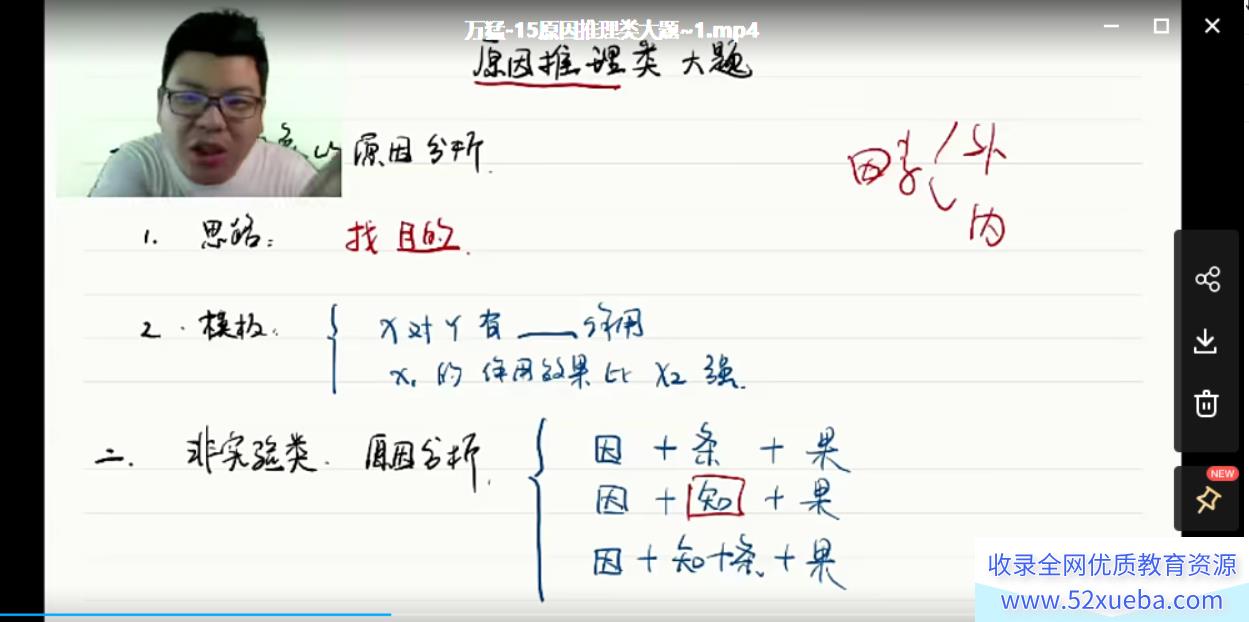 万猛-15原因推理类大题~1.mp4
原因推理类大题
原因分析.
因素 外
内
1. 思路: 找目的.
2. 模板:
X对Y有___作用
X1的作用效果比X2强.
二. 非实验类. 原因分析.
因 + 条 + 果
因 + 知 + 果
因 + 知+条 + 果
NEW
收录全网优质教育资源
www.52xueba.com